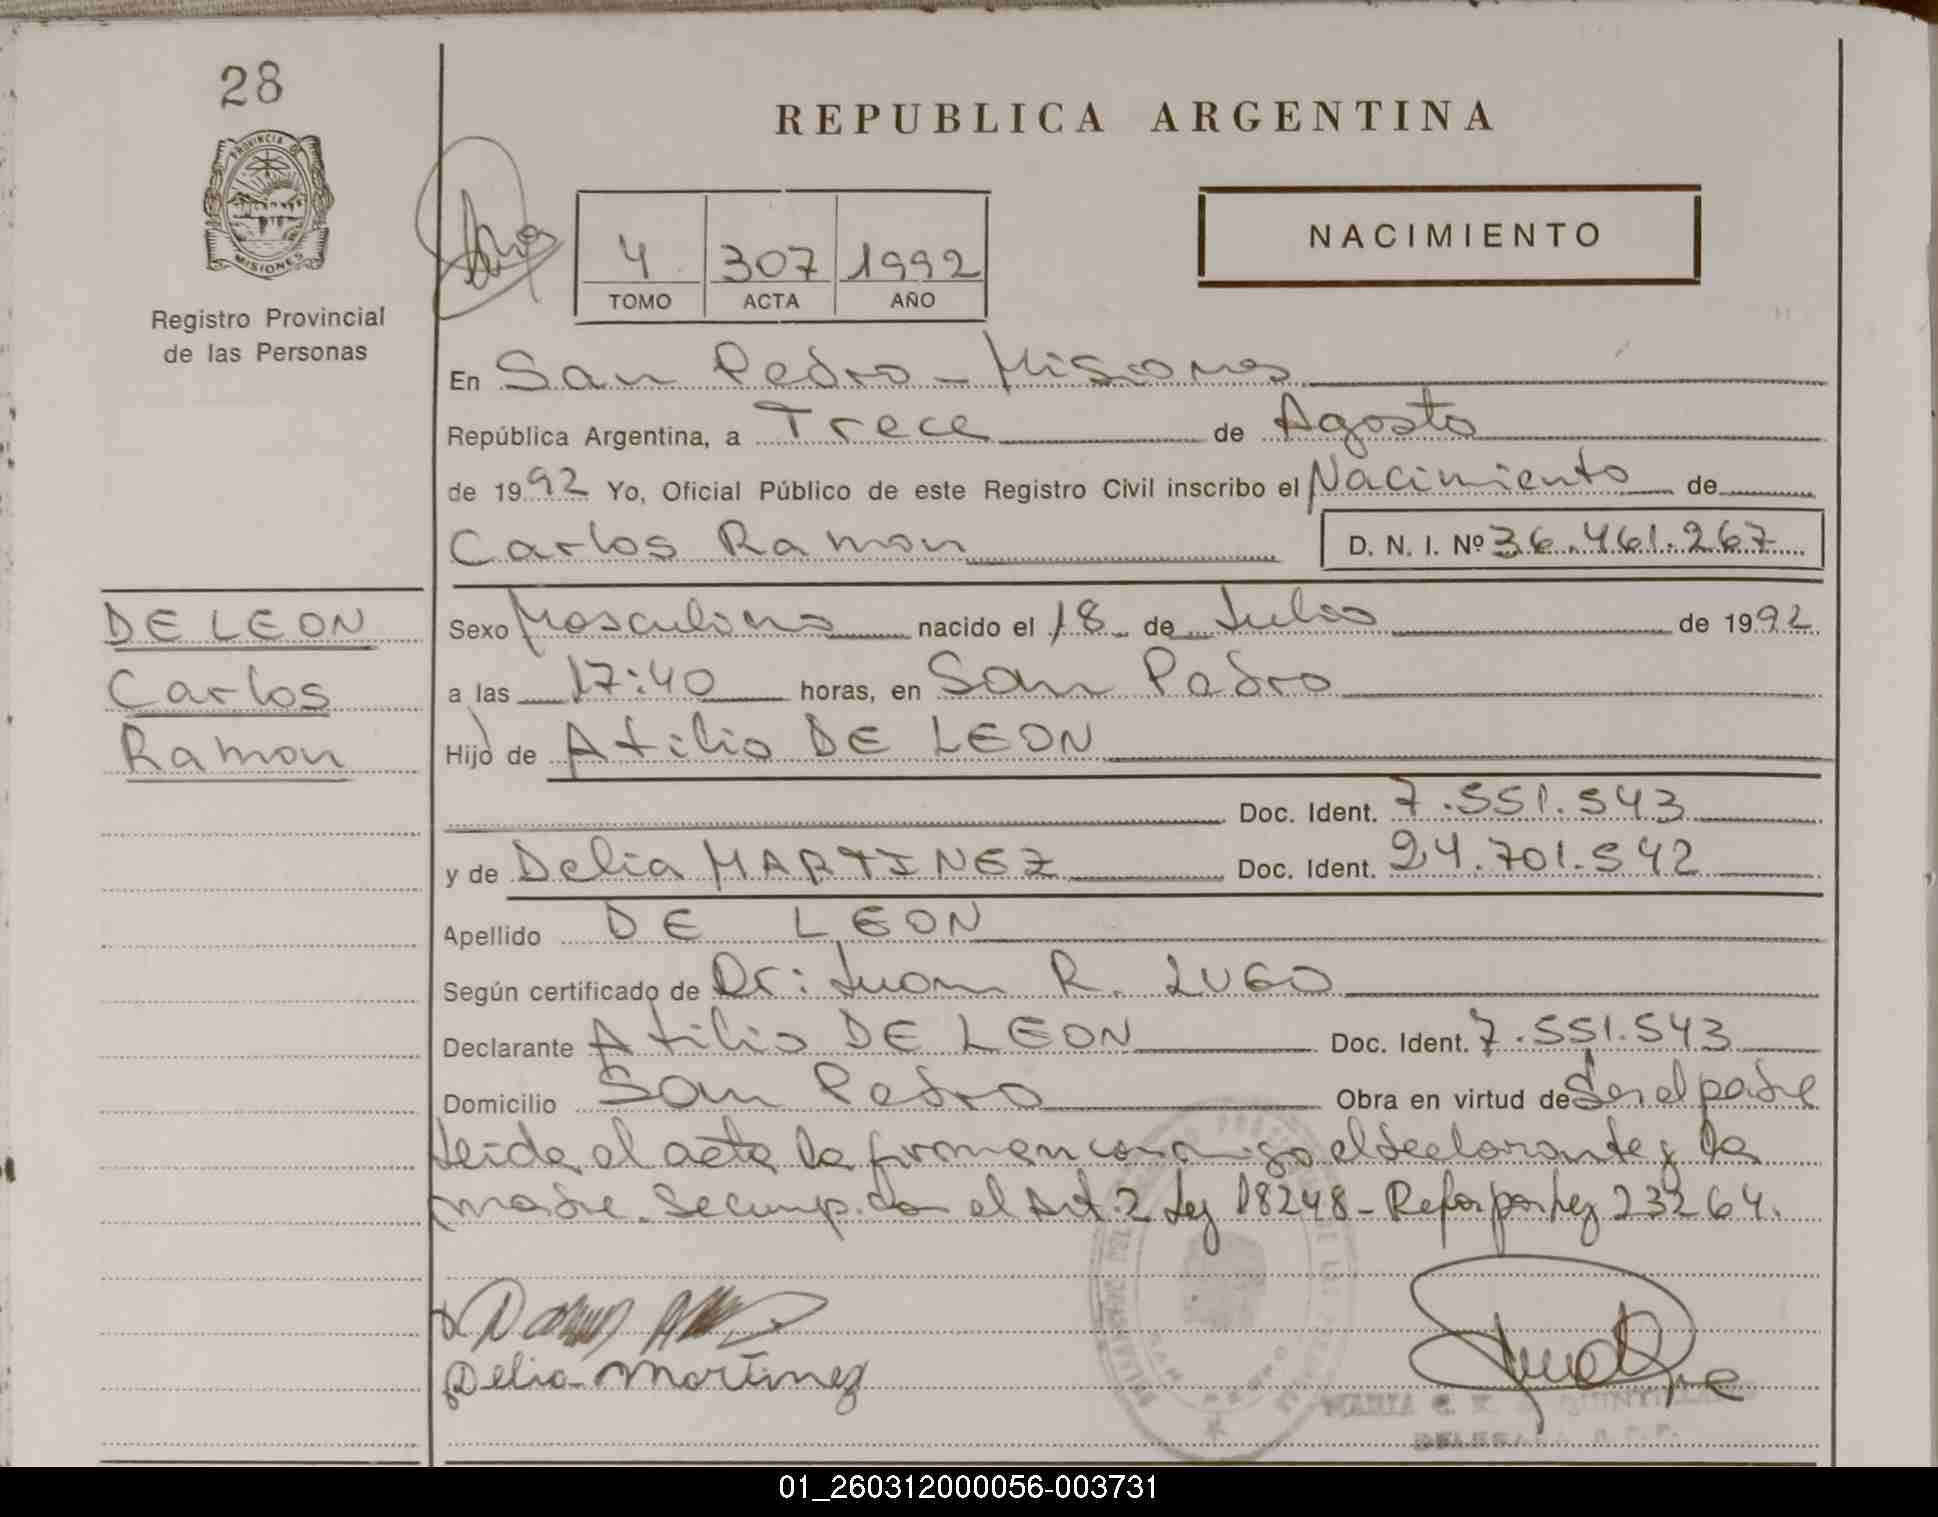 28
PROVINCIA DE
MISIONES
Registro Provincial
de las Personas
REPUBLICA ARGENTINA
NACIMIENTO
4 307 1992
TOMO ACTA AÑO
En San Pedro - Misiones
República Argentina, a Trece de Agosto
de 1992 Yo, Oficial Público de este Registro Civil inscribo el Nacimiento de
Carlos Ramon D. N. I. Nº 36.461.267
DE LEON
Carlos
Ramon
Sexo Masculino nacido el 18 de Julio de 1992
a las 17:40 horas, en San Pedro
Hijo de Atilio DE LEON
Doc. Ident. 7.551.543
y de Delia MARTINEZ Doc. Ident. 24.701.542
Apellido DE LEON
Según certificado de Dr: Juan R. LUGO
Declarante Atilio DE LEON Doc. Ident. 7.551.543
Domicilio San Pedro Obra en virtud de Ser el padre
Leida el acta la firman conmigo el declarante y la
madre. Se cump. con el Art. 2 Ley 18248 - Refor por Ley 23264.
Delia Martinez
MARIA
01_260312000056-003731